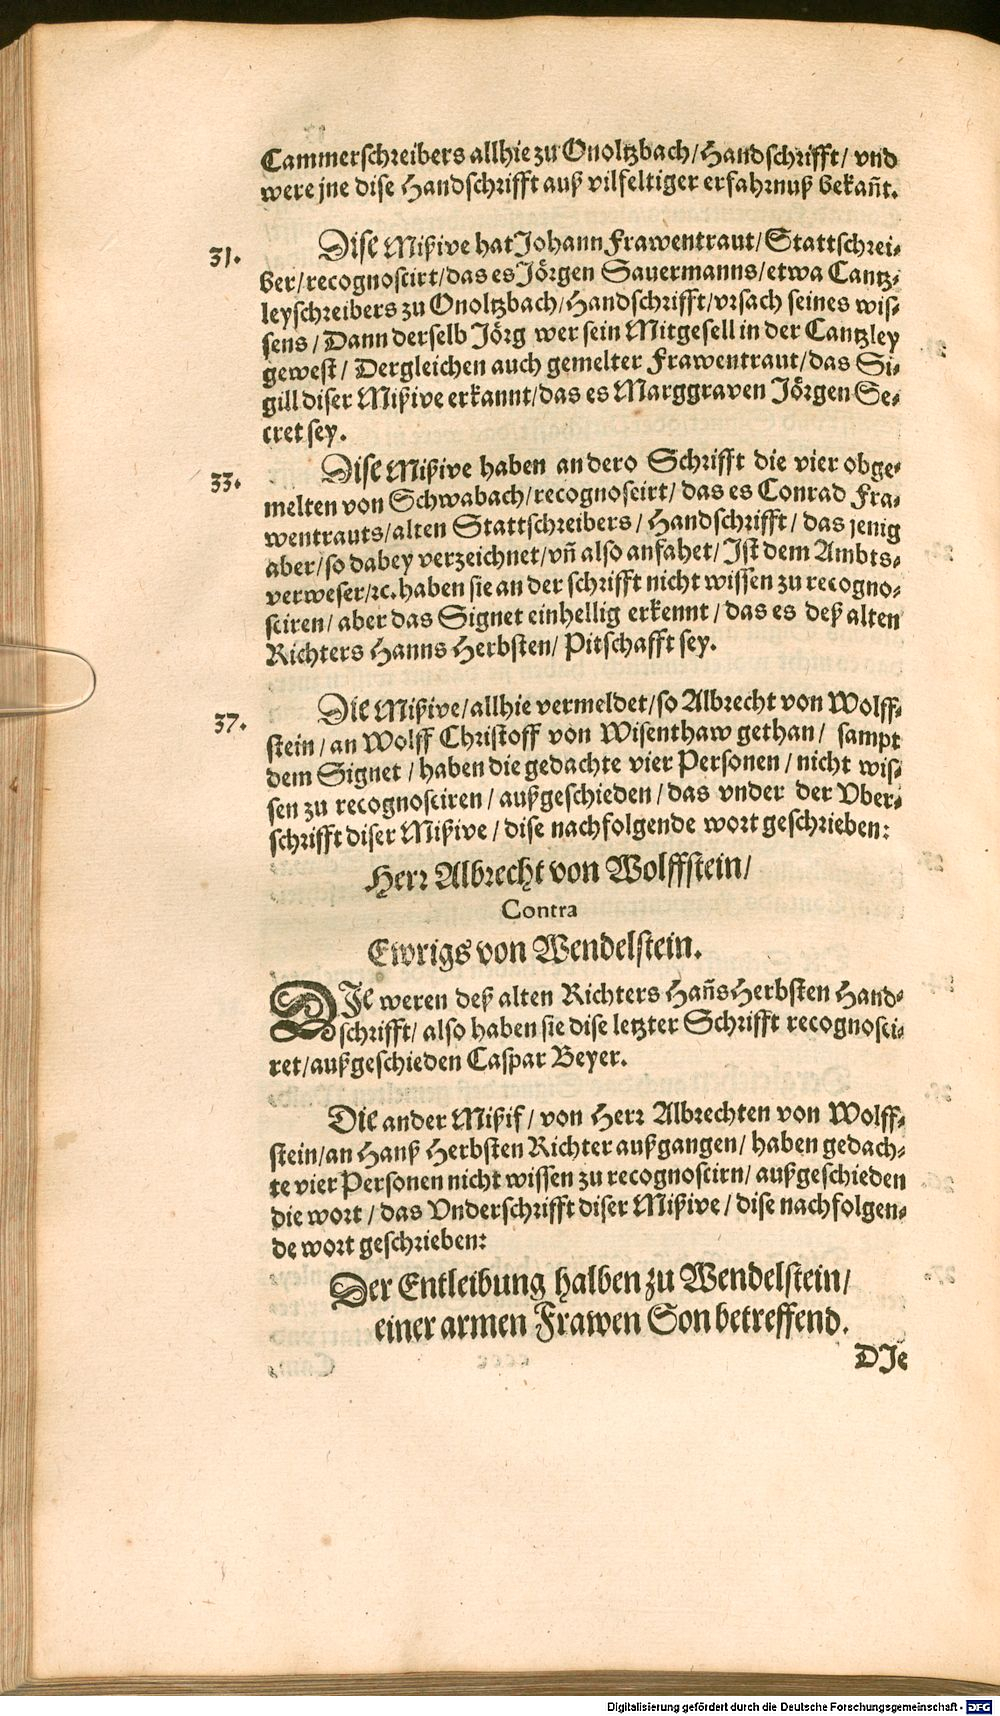 Cammerschreibers allhie zu Onoltzbach/Handschrifft/ vnd
were jne dise Handschrifft auß vilfeltiger erfahrnuß bekañt.
31. Dise Mißive hat Johann Frawentraut/Stattschrei-
ber/recognoscirt/das es Jörgen Sauermanns/etwa Cantz-
leyschreibers zu Onoltzbach/Handschrifft/vrsach seines wis-
sens/Dann derselb Jörg wer sein Mitgesell in der Cantzley
gewest/ Dergleichen auch gemelter Frawentraut/das Si-
gill diser Mißive erkannt/das es Marggraven Jörgen Se-
cret sey.
33. Dise Mißive haben an dero Schrifft die vier obge-
melten von Schwabach/recognoscirt/ das es Conrad Fra-
wentrauts/alten Stattschreibers/ Handschrifft/ das jenig
aber/so dabey verzeichnet/vñ also anfahet/Ist dem Ambts-
verweser/ꝛc. haben sie an der schrifft nicht wissen zu recogno-
sciren/ aber das Signet einhellig erkennt/das es deß alten
Richters Hanns Herbsten/ Pitschafft sey.
37. Die Mißive/allhie vermeldet/so Albrecht von Wolff-
stein/an Wolff Christoff von Wisenthaw gethan/ sampt
dem Signet/haben die gedachte vier Personen/nicht wis-
sen zu recognosciren/außgeschieden/das vnder der Vber-
schrifft diser Mißive/dise nachfolgende wort geschrieben:
Herr Albrecht von Wolffstein/
Contra
Ewrigs von Wendelstein.
DIe weren deß alten Richters Hañs Herbsten Hand-
schrifft/ also haben sie dise letzter Schrifft recognosci-
ret/außgeschieden Caspar Beyer.
Die ander Mißif/von Herr Albrechten von Wolff-
stein/an Hanß Herbsten Richter außgangen/ haben gedach-
te vier Personen nicht wissen zu recognoscirn/außgeschieden
die wort/das Vnderschrifft diser Mißive/dise nachfolgen-
de wort geschrieben:
Der Entleibung halben zu Wendelstein/
einer armen Frawen Son betreffend.
DIe
Digitalisierung gefördert durch die Deutsche Forschungsgemeinschaft - DFG